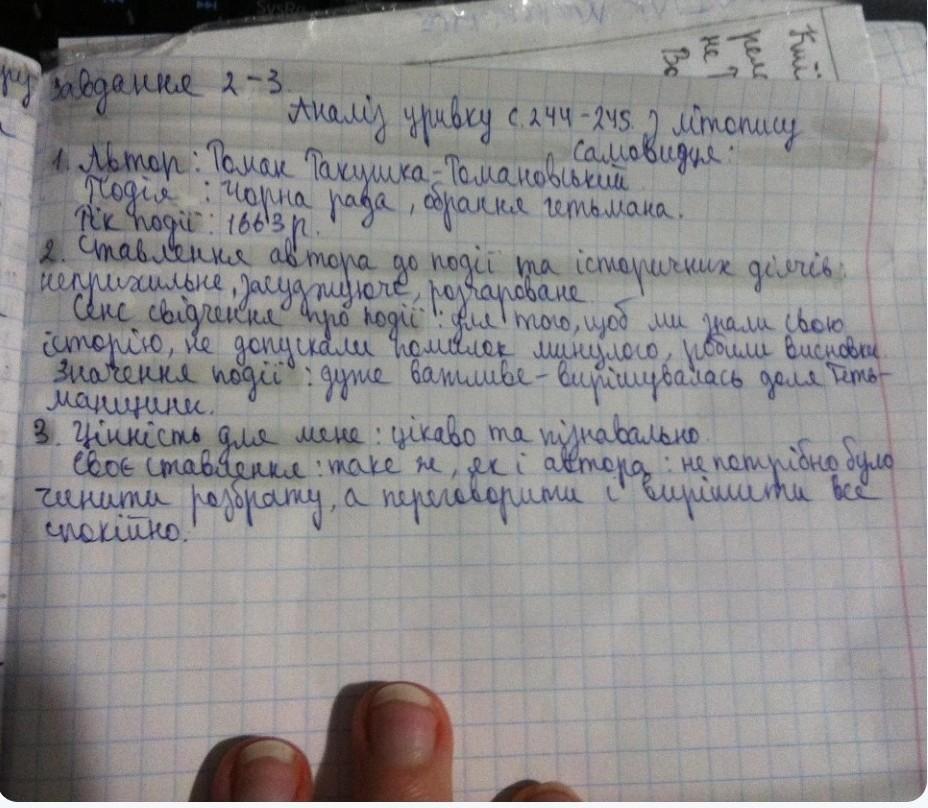 завдання 2-3
Аналіз уривку с.244-245. з літопису
Самовидця:
1. Автор: Роман Ракушка-Романовський
Подія : Чорна рада, обрання гетьмана.
Рік події: 1663 р.
2. Ставлення автора до події та історичних діячів:
неприхильне, засуджуюче, розчароване
Сенс свідчення про події : для того, щоб ми знали свою
історію, не допускали помилок минулого, робили висновки.
Значення події : дуже важливе - вирішувалась доля Геть-
манщини.
3. Цінність для мене : цікаво та пізнавально.
Своє ставлення : таке ж, як і автора : не потрібно було
чинити розбрату, а переговорити і вирішити все
спокійно.
Киї
не